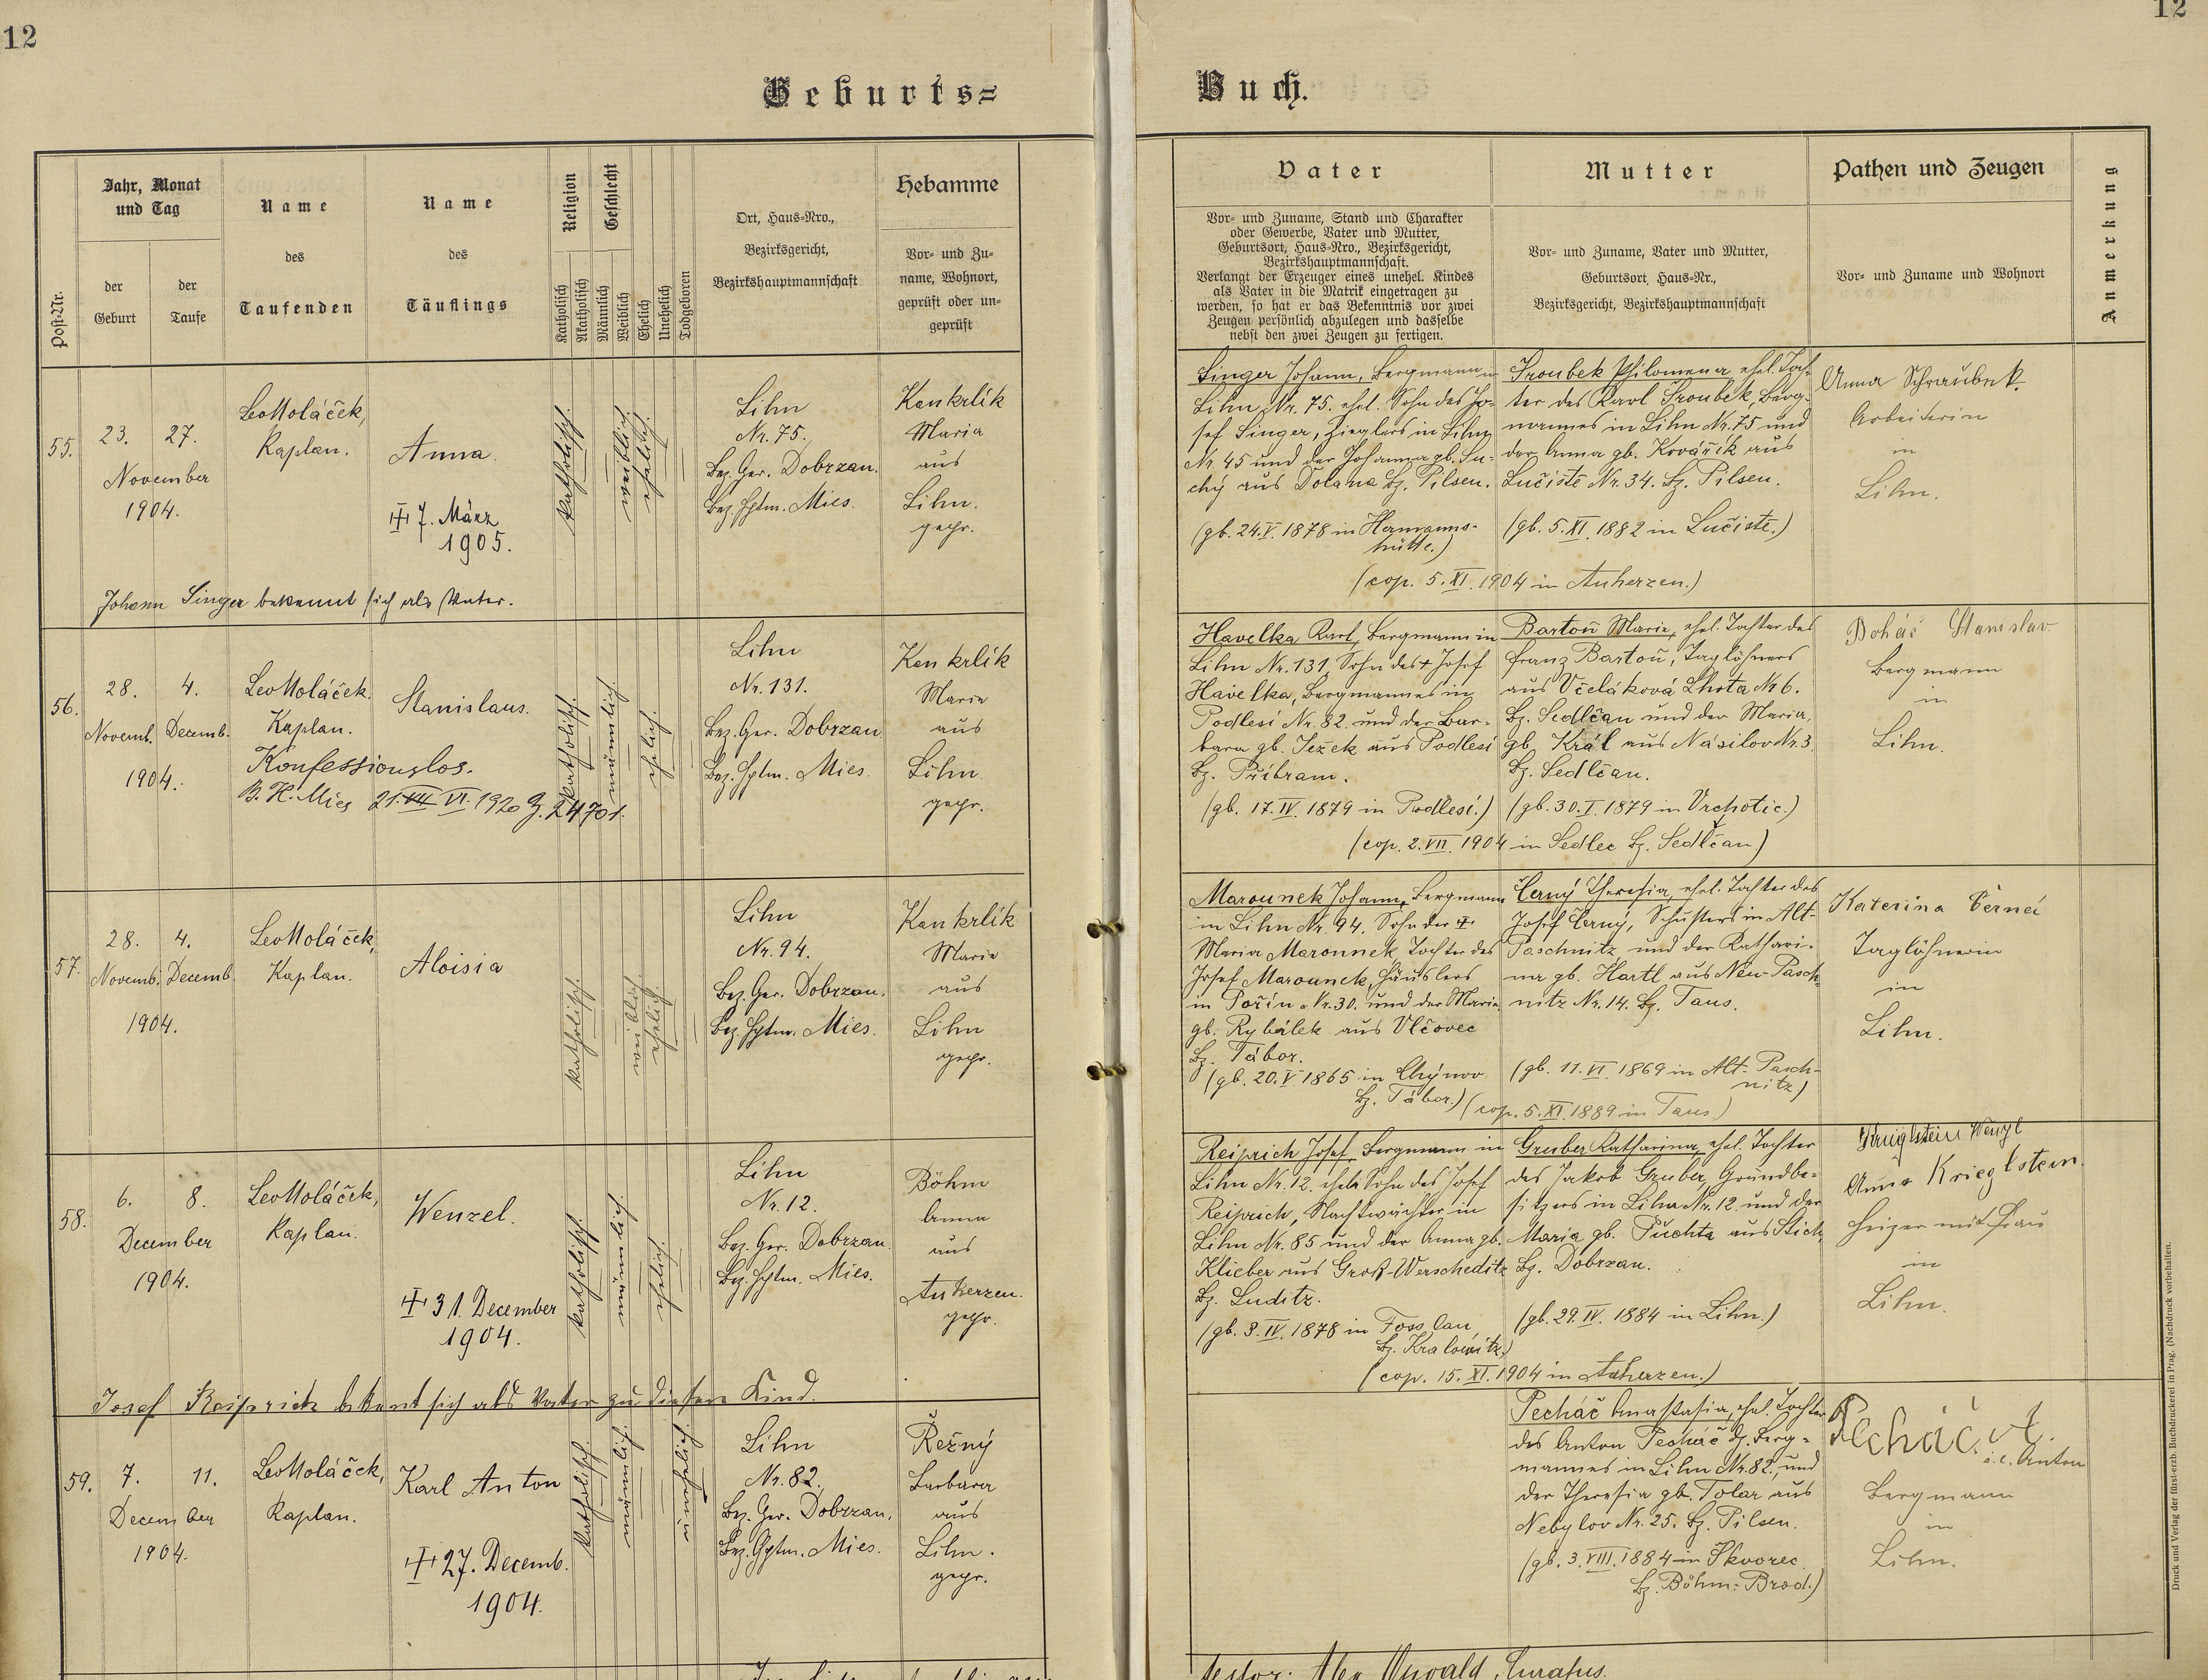 12
12
Geburts=
Buch.
Post-Nr.
Jahr, Monat
und Tag
der
Geburt
der
Taufe
Name
des
Taufenden
Name
des
Täuflings
Religion
Katholisch
Akatholisch
Geschlecht
Männlich
Weiblich
Ehelich
Unehelich
Todgeboren
Ort, Haus-Nro.,
Bezirksgericht,
Bezirkshauptmannschaft
Hebamme
Vor- und Zu-
name, Wohnort,
geprüft oder un-
geprüft
Vater
Vor- und Zuname, Stand und Charakter
oder Gewerbe, Vater und Mutter,
Geburtsort, Haus-Nro., Bezirksgericht,
Bezirkshauptmannschaft.
Verlangt der Erzeuger eines unehel. Kindes
als Vater in die Matrik eingetragen zu
werden, so hat er das Bekenntnis vor zwei
Zeugen persönlich abzulegen und dasselbe
nebst den zwei Zeugen zu fertigen.
Mutter
Vor- und Zuname, Vater und Mutter,
Geburtsort, Haus-Nr.,
Bezirksgericht, Bezirkshauptmannschaft
Pathen und Zeugen
Vor- und Zuname und Wohnort
Anmerkung
55.
23. 27.
November
1904.
Leo Moláček,
Kaplan.
Anna.
7. März
1905.
katholisch.
weiblich.
ehelich.
Lihn
Nr. 75.
Bez. Ger. Dobrzan.
Bez. Hptm. Mies.
Kankrlik
Maria
aus
Lihn.
gepr.
Johann Singer bekennt sich als Vater.
Singer Johann, Bergmann in
Lihn Nr. 75. ehel. Sohn des Jo-
sef Singer, Zieglers in Lihn
Nr. 45 und der Johanna gb. Su-
chý aus Dolana Bz. Pilsen.
(gb. 24. V. 1878 in Hermanns-
hütte.)
Sroubek Philomena, ehel. Toch-
ter des Karl Sroubek, Berg-
mannes in Lihn Nr. 75 und
der Anna gb. Kovářík aus
Lučiště Nr. 34. Bz. Pilsen.
(gb. 5. XI. 1882 in Lučiště.)
(cop. 5. XI. 1904 in Auherzen.)
Anna Schraubek
Arbeiterin
in
Lihn.
56.
28. 4.
Novemb. Decemb.
1904.
Leo Moláček.
Kaplan.
Stanislaus.
Konfessionslos.
B. H. Mies 21. VII VI. 1920 Z. 24701.
katholisch.
männlich.
ehelich.
Lihn
Nr. 131.
Bez. Ger. Dobrzan
Bez. Hptm. Mies.
Kankrlik
Maria
aus
Lihn.
gepr.
Havelka Karl, Bergmann in
Lihn Nr. 131, Sohn des + Josef
Havelka, Bergmannes in
Podlesí Nr. 82. und der Bar-
bara gb. Ježek aus Podlesí
Bz. Příbram.
(gb. 17. IV. 1879 in Podlesí.)
Bartoň Marie, ehel. Tochter des
Franz Bartoň, Taglöhners
aus Včeláková Lhota Nr 6.
Bz. Sedlčan und der Maria,
gb. Král aus Násilov Nr. 3.
Bz. Sedlčan.
(gb. 30. I. 1879 in Vrchotic.)
(cop. 2. VII. 1904 in Sedlec Bz. Sedlčan.)
Boháč Stanislav
Bergmann
in
Lihn.
57.
28. 4.
Novemb. Decemb.
1904.
Leo Moláček,
Kaplan.
Aloisia
katholisch.
weiblich.
ehelich.
Lihn
Nr. 94.
Bez. Ger. Dobrzan.
Bez. Hptm. Mies.
Kankrlik
Maria
aus
Lihn
gepr.
Marounek Johann, Bergmann
in Lihn Nr. 94. Sohn der +
Maria Marounek, Tochter des
Josef Marounek, Häuslers
in Pořín Nr. 30. und der Maria
gb. Rybálek aus Vlčovec
Bz. Tábor.
(gb. 20. V. 1865 in Chýnov
Bz. Tábor.)
Černý Theresia, ehel. Tochter des
Josef Černý, Schusters in Alt-
Paschnitz, und der Kathari-
na gb. Hartl aus Neu-Pasch-
nitz Nr. 14. Bz. Taus.
(gb. 11. VI. 1869 in Alt-Pasch-
nitz)
(cop. 5. XI. 1889 in Taus)
Katerina Černei
Taglöhnerin
in
Lihn.
58.
6. 8.
December
1904.
Leo Moláček,
Kaplan.
Wenzel.
31. December
1904.
katholisch.
männlich.
ehelich.
Lihn
Nr. 12.
Bez. Ger. Dobrzan.
Bez. Hptm. Mies.
Böhm
Anna
aus
Auherzen.
gepr.
Josef Reiprich bekent sich als Vater zu diesem Kind.
Reiprich Josef, Bergmann in
Lihn Nr. 12. ehel. Sohn des Josef
Reiprich, Nachtwächter in
Lihn Nr. 85 und der Anna gb.
Klieber aus Groß-Werscheditz
Bz. Luditz.
(gb. 3. IV. 1878 in Fosslau,
Bz. Kralowitz.)
Gruber Katharina, ehel. Tochter
des Jakob Gruber, Grundbe-
sitzers in Lihn Nr. 12. und der
Maria gb. Puchta aus Stich,
Bz. Dobrzan.
(gb. 29. IV. 1884 in Lihn.)
(cop. 15. XI. 1904 in Auherzen.)
Wenzl
Anna Krieglstein.
Heizer mit Frau
in
Lihn.
59.
7. 11.
December
1904.
Leo Moláček,
Kaplan.
Karl Anton
27. Decemb.
1904.
katholisch
männlich.
unehelich
Lihn
Nr. 82.
Bez. Ger. Dobrzan.
Bez. Hptm. Mies.
Řežný
Barbara
aus
Lihn.
gepr.
Pecháč Anastasia, ehel. Tochter
des Anton Pecháč, Berg-
mannes in Lihn Nr. 82. und
der Theresia gb. Tolar aus
Nebylov Nr. 25. Bz. Pilsen.
(gb. 3. VIII. 1884 in Skvorec
Bz. Böhm: Brod.)
Pecháč A.
i. e. Anton
Bergmann
in
Lihn.
Druck und Verlag der fürst-erzb. Buchdruckerei in Prag. (Nachdruck vorbehalten.